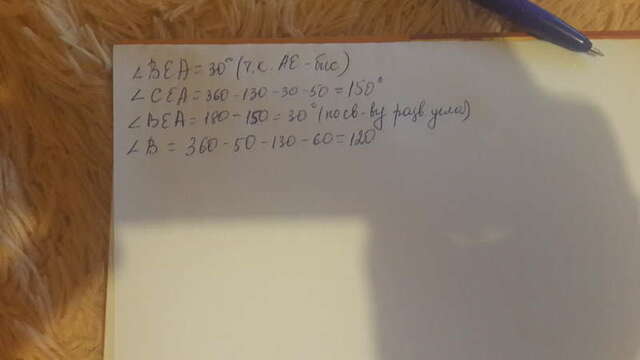 ∠BEA = 30° (т.к. AE - бис)
∠CEA = 360 - 130 - 30 - 50 = 150°
∠BEA = 180 - 150 = 30° (по св-ву разв угла)
∠B = 360 - 50 - 130 - 60 = 120°